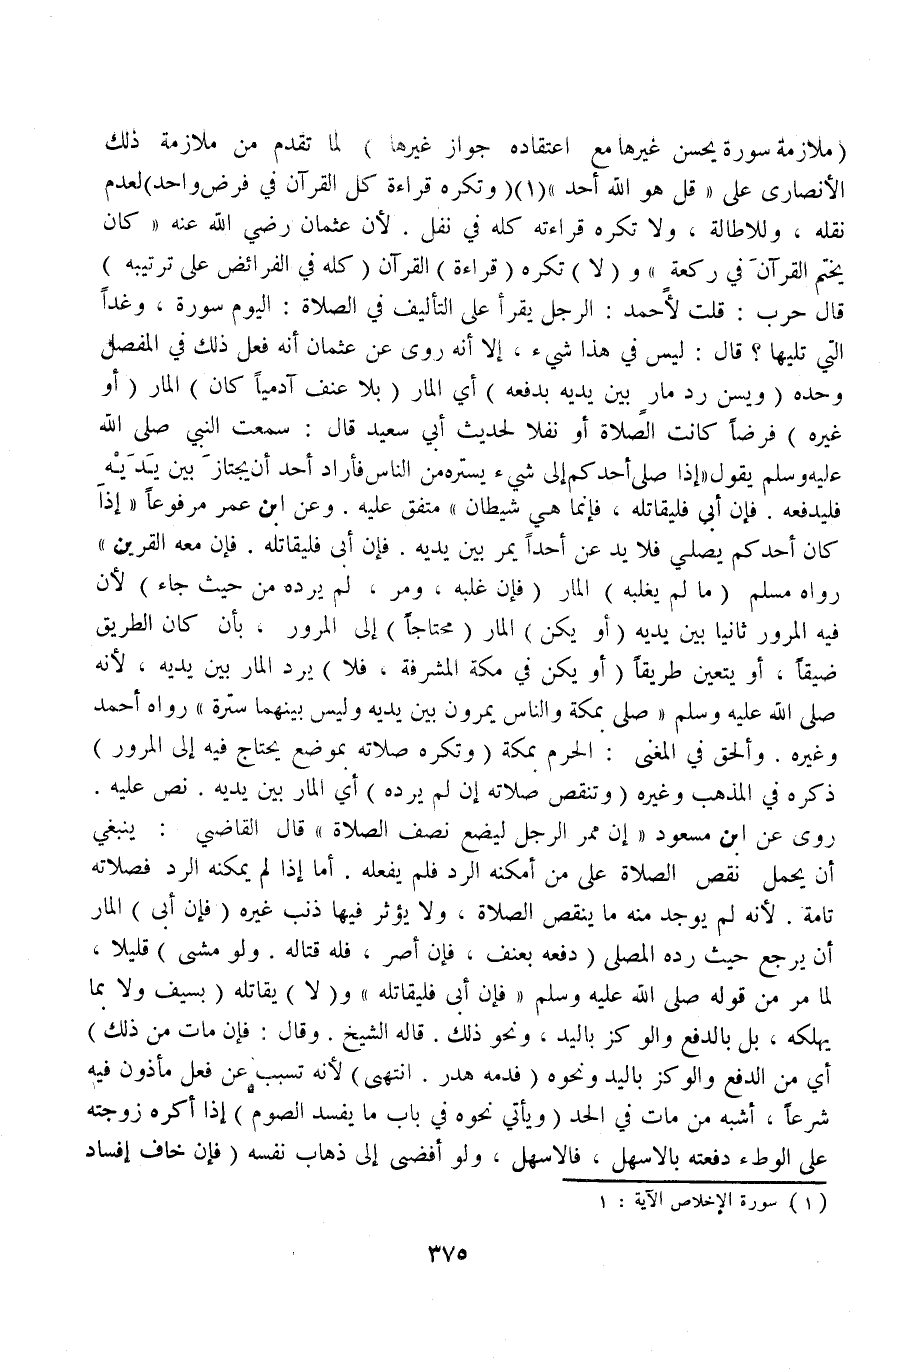 ( ملازمة سورة يحسن غيرها مع اعتقاده جواز غيرها ) لما تقدم من ملازمة ذلك
الأنصارى على « قل هو الله أحد »(١)( وتكره قراءة كل القرآن في فرض واحد)لعدم
نقله ، وللاطالة ، ولا تكره قراءته كله في نفل . لأن عثمان رضي الله عنه « كان
يختم القرآنَ في ركعةٍ » و ( لا ) تكره ( قراءة ) القرآن ( كله في الفرائض على ترتيبه )
قال حرب : قلت لأحمد : الرجل يقرأ على التأليف في الصلاة : اليوم سورة ، وغداً
التي تليها ؟ قال : ليس في هذا شيء ، إلا أنه روى عن عثمان أنه فعل ذلك في المفصل
وحده ( ويسن رد مارٍ بين يديه بدفعه ) أي المار ( بلا عنف آدمياً كان ) المار ( أو
غيره ) فرضاً كانت الصلاة أو نفلا لحديث أبي سعيد قال : سمعت النبي صلى الله
عليه وسلم يقول«إذا صلى أحدكم إلى شيء يستره من الناس فأراد أحد أن يجتازَ بين يَدَيْهِ
فليدفعه . فإن أبي فليقاتله ، فإنما هي شيطان » متفق عليه . وعن ابن عمر مرفوعاً « إذا
كان أحدكم يصلي فلا يد عن أحداً يمر بين يديه . فإن أبى فليقاتله . فإن معه القرين »
رواه مسلم ( ما لم يغلبه ) المار ( فإن غلبه ، ومر ، لم يرده من حيث جاء ) لأن
فيه المرور ثانيا بين يديه ( أو يكن ) المار ( محتاجاً ) إلى المرور ، بأن كان الطريق
ضيقاً ، أو يتعين طريقاً ( أو يكن في مكة المشرفة ، فلا ) يرد المار بين يديه ، لأنه
صلى الله عليه وسلم « صلى بمكة والناس يمرون بين يديه وليس بينهما سترة » رواه أحمد
وغيره . وألحق في المغنى : الحرم بمكة ( وتكره صلاته بموضع يحتاج فيه إلى المرور )
ذكره في المذهب وغيره ( وتنقص صلاته إن لم يرده ) أي المار بين يديه . نص عليه .
روى عن ابن مسعود « إن ممر الرجل ليضع نصف الصلاة » قال القاضي : ينبغي
أن يحمل نقص الصلاة على من أمكنه الرد فلم يفعله . أما إذا لم يمكنه الرد فصلاته
تامة . لأنه لم يوجد منه ما ينقص الصلاة ، ولا يؤثر فيها ذنب غيره ( فإن أبى ) المار
أن يرجع حيث رده المصلى ( دفعه بعنف ، فإن أصر ، فله قتاله . ولو مشى ) قليلا ،
لما مر من قوله صلى الله عليه وسلم « فإن أبي فليقاتله » و( لا ) يقاتله ( بسيف ولا بما
يهلكه ، بل بالدفع والو كز باليد ، ونحو ذلك . قاله الشيخ . وقال : فإن مات من ذلك )
أي من الدفع والوكز باليد ونحوه ( فدمه هدر . انتهى ) لأنه تسبب عن فعل مأذون فيه
شرعاً ، أشبه من مات في الحد ( ويأتي نحوه في باب ما يفسد الصوم ) إذا أكره زوجته
على الوطء دفعته بالاسهل ، فالاسهل ، ولو أفضى إلى ذهاب نفسه ( فإن خاف إفساد
( ١ ) سورة الإخلاص الآية : ١
٣٧٥